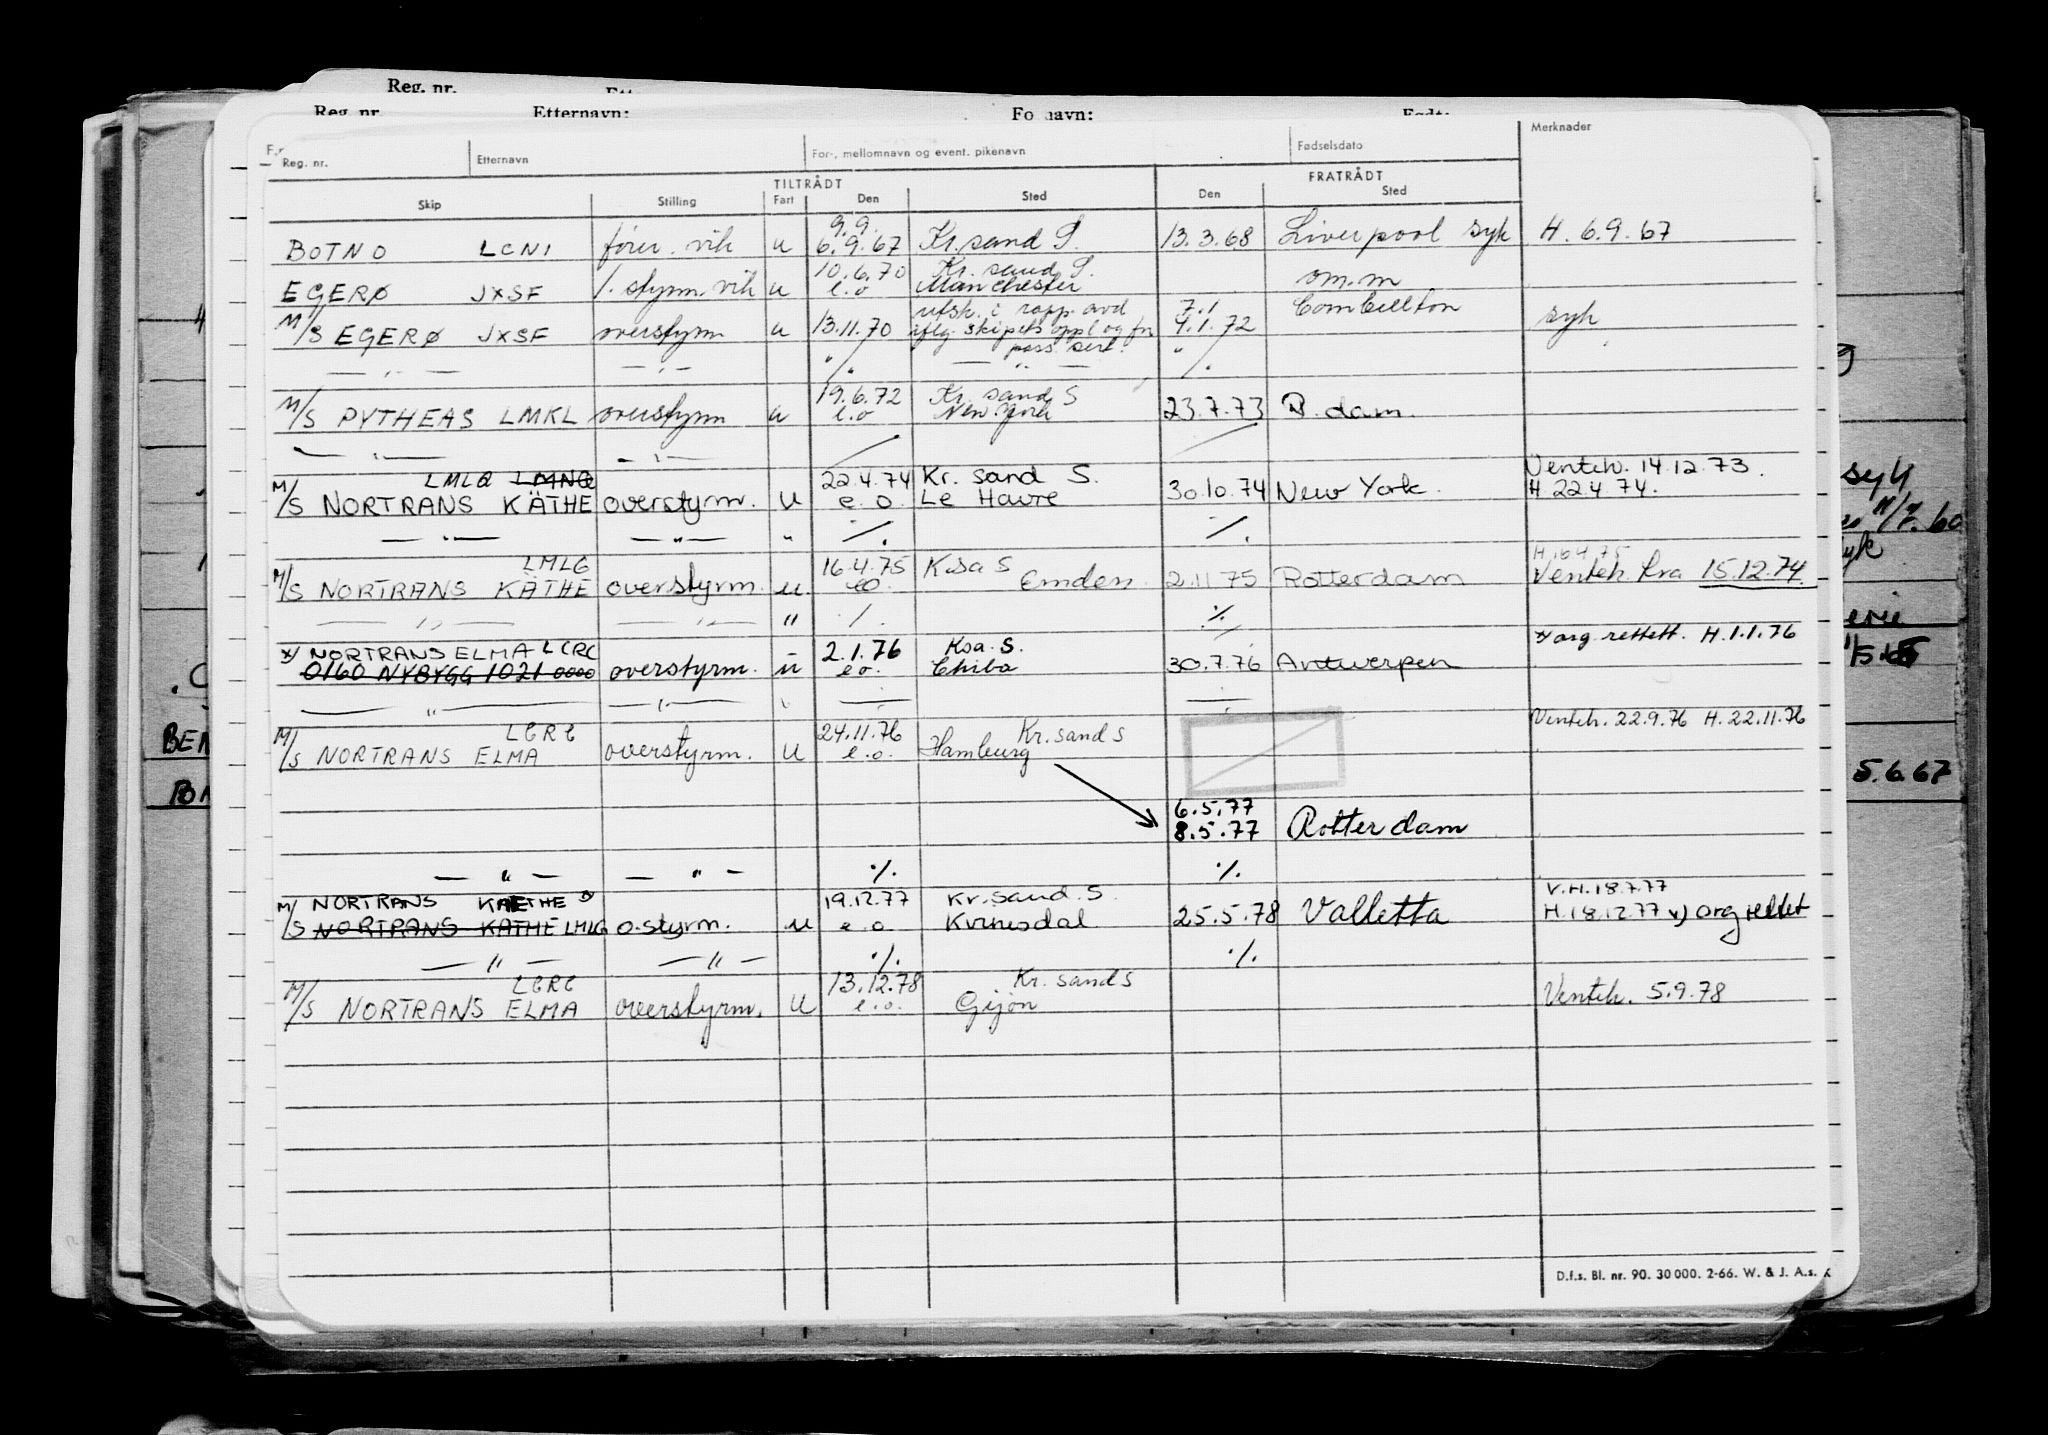 Reg. nr.
Reg. nr. Etternavn: Fo navn:
Reg. nr. Etternavn For-, mellomnavn og event. pikenavn Fødselsdato Merknader
TILTRÅDT FRATRÅDT
Skip Stilling Fart Den Sted Den Sted
9.9.
BOTNO LCNI fører. vik u 6.9.67 Kr.sand S. 13.3.68 Liverpool syk H. 6.9.67
10.6.70 Kr. sand S.
EGERØ JXSF 1. styrm. vik u e.o Manchester om.m
utsk. i rapp. avd 7.1
M/S EGERØ JXSF overstyrm u 13.11.70 iflg. skipets oppl og fn 4.1.72 syk
pass. serl.
— " — — " — ./. — " — ./.
19.6.72 Kr. sand S
M/S PYTHEAS LMKL overstyrm u e.o New York 23.7.73 R.dam.
— " — — " — / /
LMLQ LMNQ 22.4.74 Kr. sand S. Venteh. 14.12.73.
M/S NORTRANS KÄTHE overstyrm. u e.o. Le Havre 30.10.74 New York. H 22.4 74.
— " — — " — " ./. ./.
LMLG 16.4.75 K.sa S H.16.4.75
M/S NORTRANS KÄTHE overstyrm. u. eo. Emden. 2.11.75 Rotterdam Venteh. fra 15.12.74.
— " — — " — " ./. ./.
x) NORTRANS ELMA LCRC 2.1.76 Ksa. S. x) org. rettett. H.1.1.76
0160 NYBYGG 1021 0000 overstyrm. u e.o. Chiba 30.7.76 Antwerpen
— " — — " —
LCRC 24.11.76 Kr.sand S Venteh. 22.9.76 H. 22.11.76
M/S NORTRANS ELMA overstyrm. u e.o. Hamburg
6.5.77
8.5.77 Rotterdam
— " — — " — ./. ./.
NORTRANS KAETHE x) 19.12.77 Kr.sand.S. V.H.18.7.77
M/S NORTRANS KÄTHE LMLG o.styrm. u e.o. Kvinesdal 25.5.78 Valletta H.18.12.77 x) org rettet
— " — — " — ./. ./.
LCRC 13.12.78 Kr. sand S
M/S NORTRANS ELMA overstyrm. u e.o. Gijon Venteh. 5.9.78
D.f.s. Bl. nr. 90. 30 000. 2-66. W. & J. A.s.
syk
5.6.67